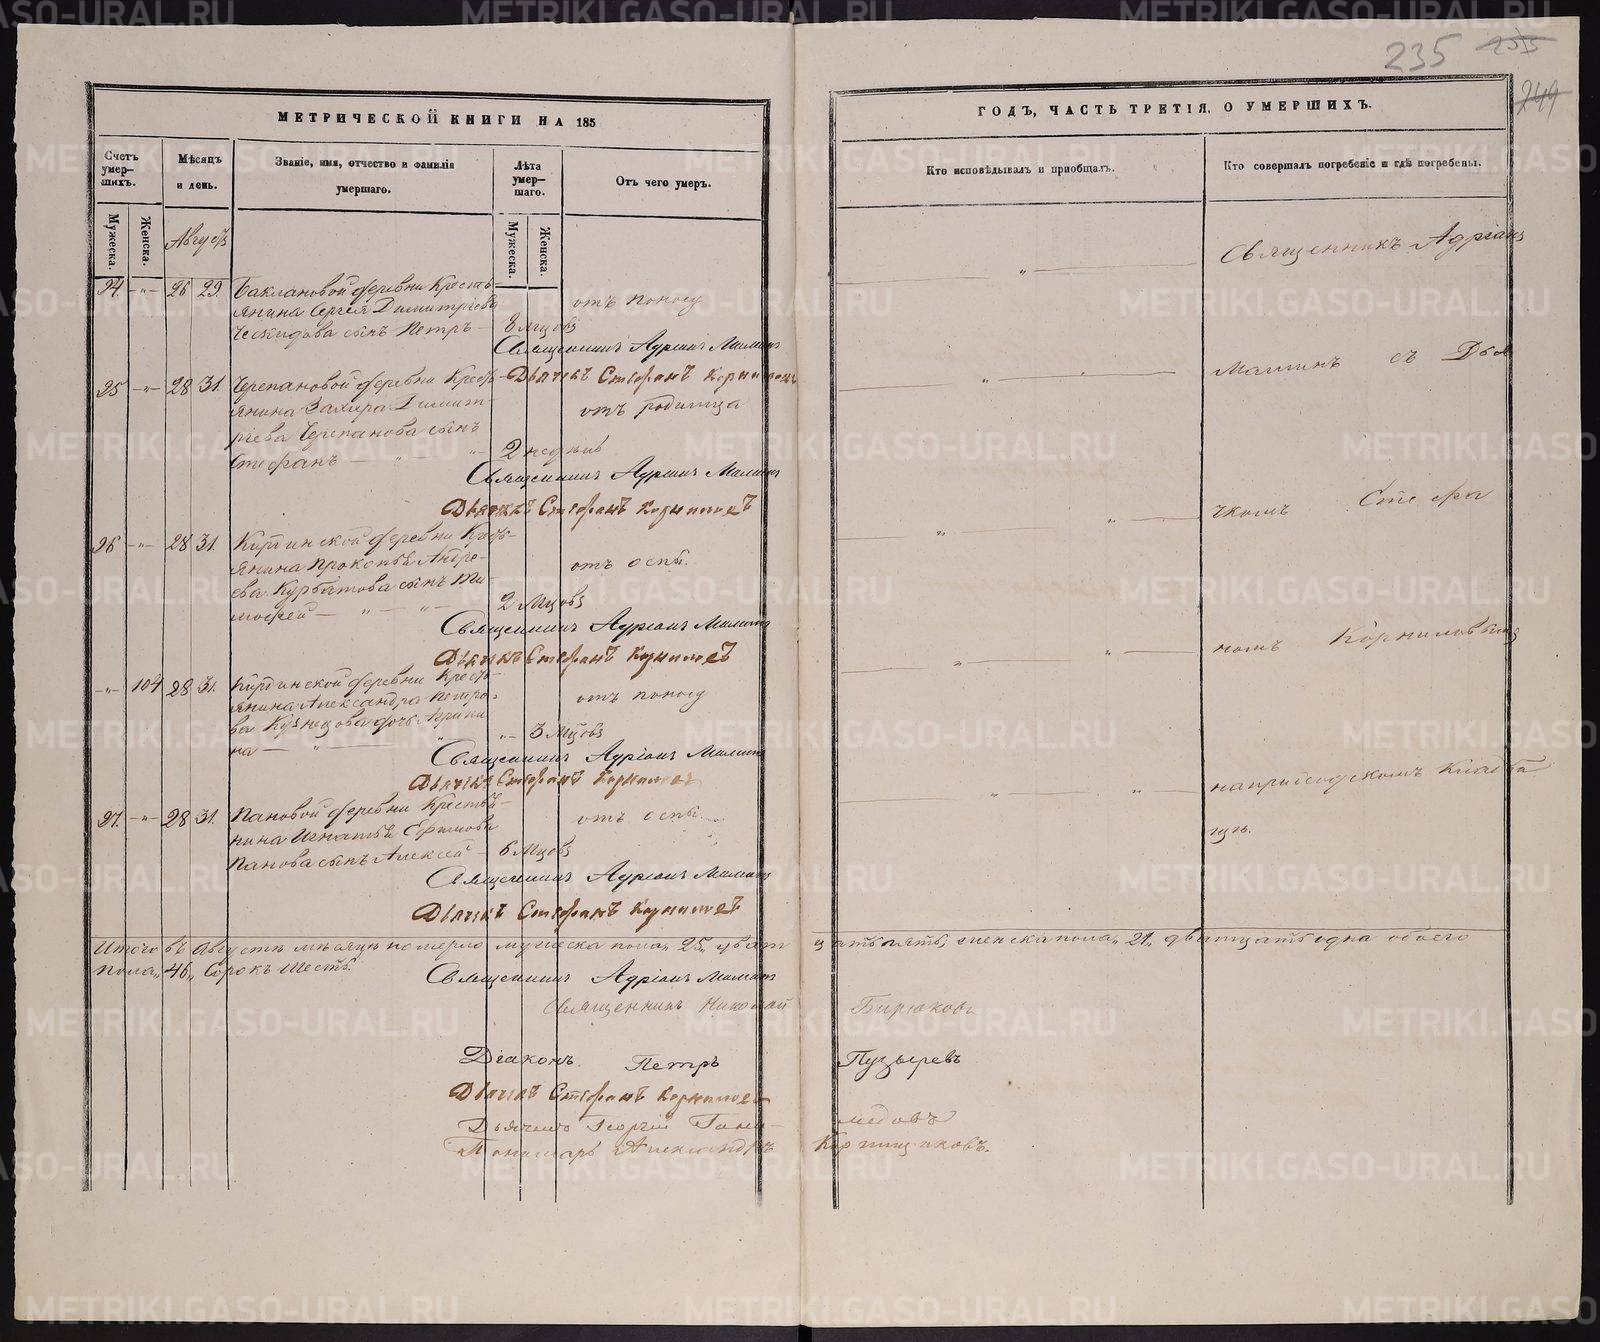 235
МЕТРИЧЕСКОЙ КНИГИ НА 185
ГОДЪ, ЧАСТЬ ТРЕТІЯ, О УМЕРШИХЪ.
Счетъ умер-шихъ.
Мѣсяцъ и день.
Званіе, имя, отчество и фамилія умершаго.
Лѣта умер-шаго.
Отъ чего умеръ.
Кто исповѣдывалъ и приобщалъ.
Кто совершалъ погребеніе и гдѣ погребены.
Мужеска.
Женска.
Августъ
Мужеска.
Женска.
Священникъ Адріанъ
26 29. Баклановой деревни Кресть-
янина Сергея Димитріева
сынъ Петръ
отъ поносу
8 мцовъ
Священникъ Адріанъ Маминъ
Дьячекъ Стефанъ Корниловъ
Маминъ съ Дья
25 28 31. Черепановой деревни Крест-
янина Захара Димит-
ріева Черепанова сынъ
Стефанъ
отъ родимца
2 недѣль
Священникъ Адріанъ Маминъ
Дьячекъ Стефанъ Корниловъ
чкомъ Стефа
26 28 31. деревни Кресть-
янина Прокопья Андре-
ева Курбатова сынъ Ти-
мофей
отъ оспы.
2 Мцовъ
Священникъ Адріанъ Маминъ
Дьячекъ Стефанъ Корниловъ
номъ Корниловымъ
104 28 31. деревни Кресть-
янина Александра Петро-
ва Кузнецова дочь Агрипи
на
отъ поносу
3 Мцовъ
Священникъ Адріанъ Маминъ
Дьячекъ Стефанъ Корниловъ
на приходскомъ кладби
щѣ.
27. 28 31. Пановой деревни Крестья-
нина Игнатья Ефимова
Панова сынъ Алексей
отъ оспы.
6 Мцовъ
Священникъ Адріанъ Маминъ
Дьячекъ Стефанъ Корниловъ
Итого въ Августѣ мѣсяцѣ померло мужеска пола „25„ двадцать пять, женска пола „21„ двадцать одна обоего
пола „46„ Сорокъ шесть.
Священникъ Адріанъ Маминъ
Священникъ Николай Бирюковъ
Діаконъ Петръ Пузыревъ
Дьячекъ Стефанъ Корниловъ
Дьячекъ Георгій
Пономарь Александръ Кирпищиковъ.
METRIKI.GASO-URAL.RU